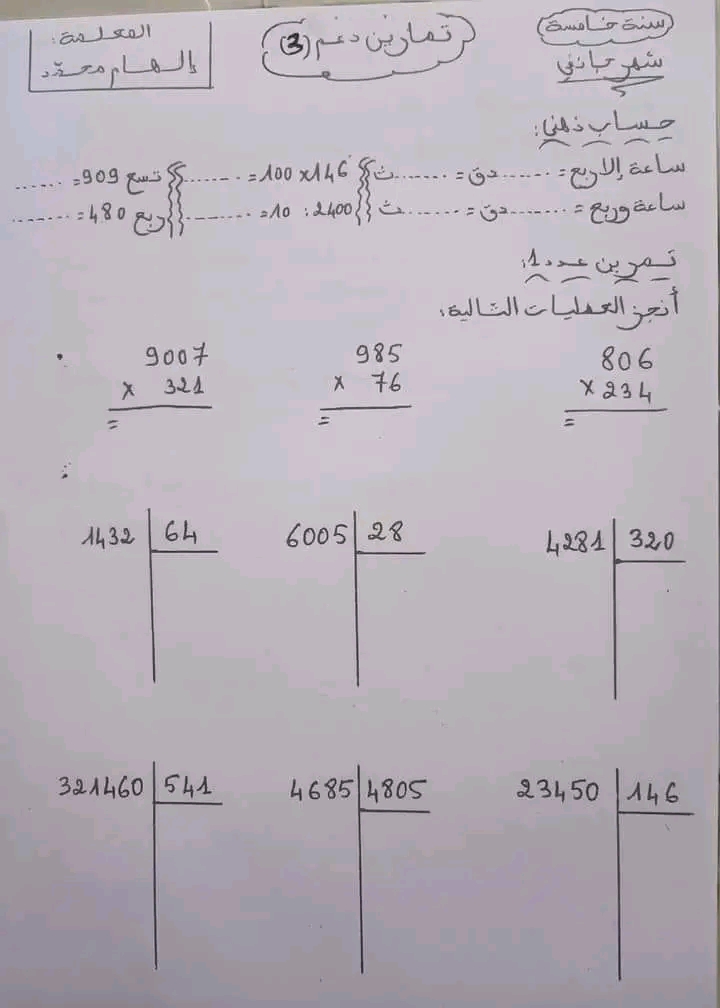 سنة خامسة
شهر جانفي
تمارين دعم (3)
المعلمة:
إلهام محمد
حساب ذهني:
ساعة إلا ربع = ........ دق = ........ ث
100 x 146 = ........
تسع 909 = ......
ساعة وربع = ........ دق = ........ ث
2400 : 10 = ........
ربع 480 = ........
تمرين عدد 1:
أنجز العمليات التالية:
806
x 234
=
985
x 76
=
9007
x 321
=
4281 | 320
6005 | 28
1432 | 64
23450 | 146
4685 | 4805
321460 | 541